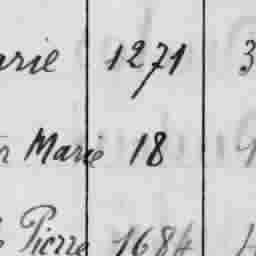 arie 1271 3
n Marie 18
Pierre 1684